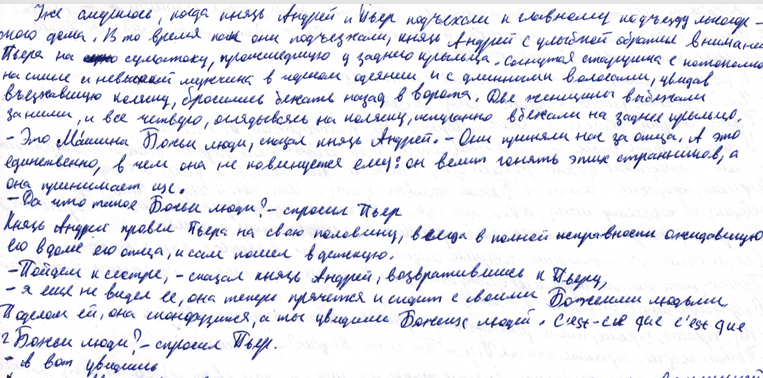 Уже смеркалось, когда князь Андрей и Пьер подъехали к главному подъезду лысогор-
ского дома. В то время как они подъезжали, князь Андрей с улыбкой обратил внимание
Пьера на суматоху, происшедшую у заднего крыльца. Согнутая старушка с котомкой
на спине и невысокий мужчина в черном одеянии, и с длинными волосами, увидав
въезжавшую коляску, бросились бежать назад в ворота. Две женщины выбежали
за ними, и все четверо, оглядываясь на коляску, испуганно вбежали на заднее крыльцо.
- Это Машины Божьи люди, сказал князь Андрей. - Они приняли нас за отца. А это
единственно, в чем она не повинуется ему: он велит гонять этих странников, а
она принимает их.
- Да что такое Божьи люди? - спросил Пьер
Князь Андрей провел Пьера на свою половину, всегда в полной исправности ожидавшую
его в доме его отца, и сам пошел в детскую.
- Пойдем к сестре, - сказал князь Андрей, возвратившись к Пьеру,
- я еще не видел ее, она теперь прячется и сидит с своими Божьими людьми
Поделом ей, она сконфузится, а ты увидишь Божьих людей. C'est-cie que c'est que
Божьи люди? - спросил Пьер.
- А вот увидишь